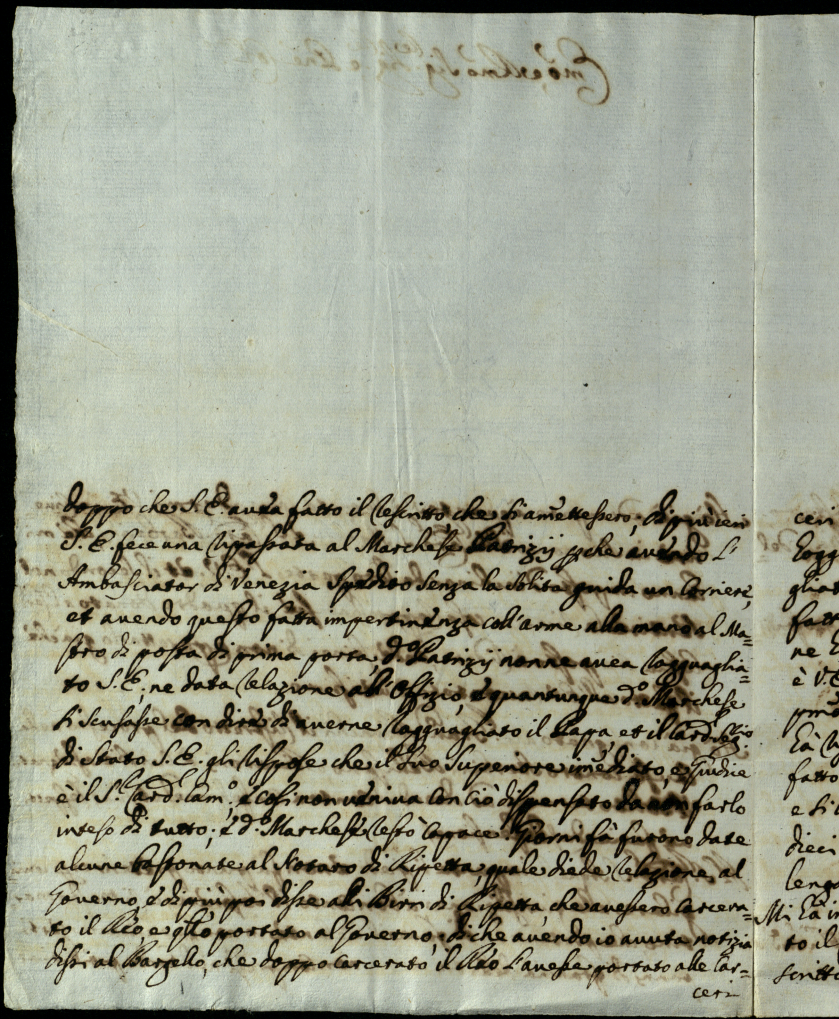 doppo che S. E. avea fatto il rescritto, che si amettessero; di più ieri
S. E. fece una ripassata al Marchese Patrizij p che avendo L'
Ambasciator di Venezia Spedito Senza la Solita guida un Corriere,
et avendo questo fatta impertinenza coll'arme alla mano al Ma=
stro di posta di prima porta, do Patrizij non ne avea ragguaglia=
to S. E., ne data relazione all'Offizio, e quantunque do Marchese
si scusasse con dire di averne ragguagliato il Papa et il Card.
di Stato S. E. gli rispose che il Suo Superiore imediato, e Giudice
è il S. Card. Camo, e così non veniva con ciò dispensato da non farlo
inteso di tutto; e do Marchese restò capace. Giorni fà furono date
alcune bastonate al Notaro di Ripetta, quale diede relazione al
Governo, e di più poi disse alli Birri di Ripetta, che avessero carcera=
to il Reo e qllo portato al Governo; di che avendo io avuta notizia
dissi al Bargello, che doppo carcerato il Reo l'avesse portato alle Car=
ceri
ceri
fatt
ne
è V. E
fatto
e si
dieci
Mi
to il
scritt